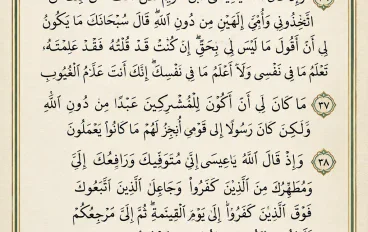 اتَّخِذُونِي وَأُمِّيَ إِلَٰهَيْنِ مِن دُونِ اللَّهِ قَالَ سُبْحَانَكَ مَا يَكُونُ
لِي أَنْ أَقُولَ مَا لَيْسَ لِي بِحَقٍّ إِن كُنتُ قَدْ قُلْتُهُ فَقَدْ عَلِمْتَهُ،
تَعْلَمُ مَا فِي نَفْسِي وَلَا أَعْلَمُ مَا فِي نَفْسِكَ إِنَّكَ أَنتَ عَلَّامُ الْغُيُوبِ
مَا كَانَ لِي أَنْ أَكُونَ لِلْمُشْرِكِينَ عَبْدًا مِن دُونِ اللَّهِ
٣٧
وَلَٰكِن كَانَ رَسُولًا إِلَى قَوْمِي أُنجِزُ لَهُمْ مَا كَانُوا يَعْمَلُونَ
٣٨
وَإِذْ قَالَ اللَّهُ يَاعِيسَى إِنِّي مُتَوَفِّيكَ وَرَافِعُكَ إِلَيَّ
وَمُطَهِّرُكَ مِنَ الَّذِينَ كَفَرُوا وَجَاعِلُ الَّذِينَ اتَّبَعُوكَ
فَوْقَ الَّذِينَ كَفَرُوا إِلَى يَوْمِ الْقِيَٰمَةِ ثُمَّ إِلَيَّ مَرْجِعُكُمْ